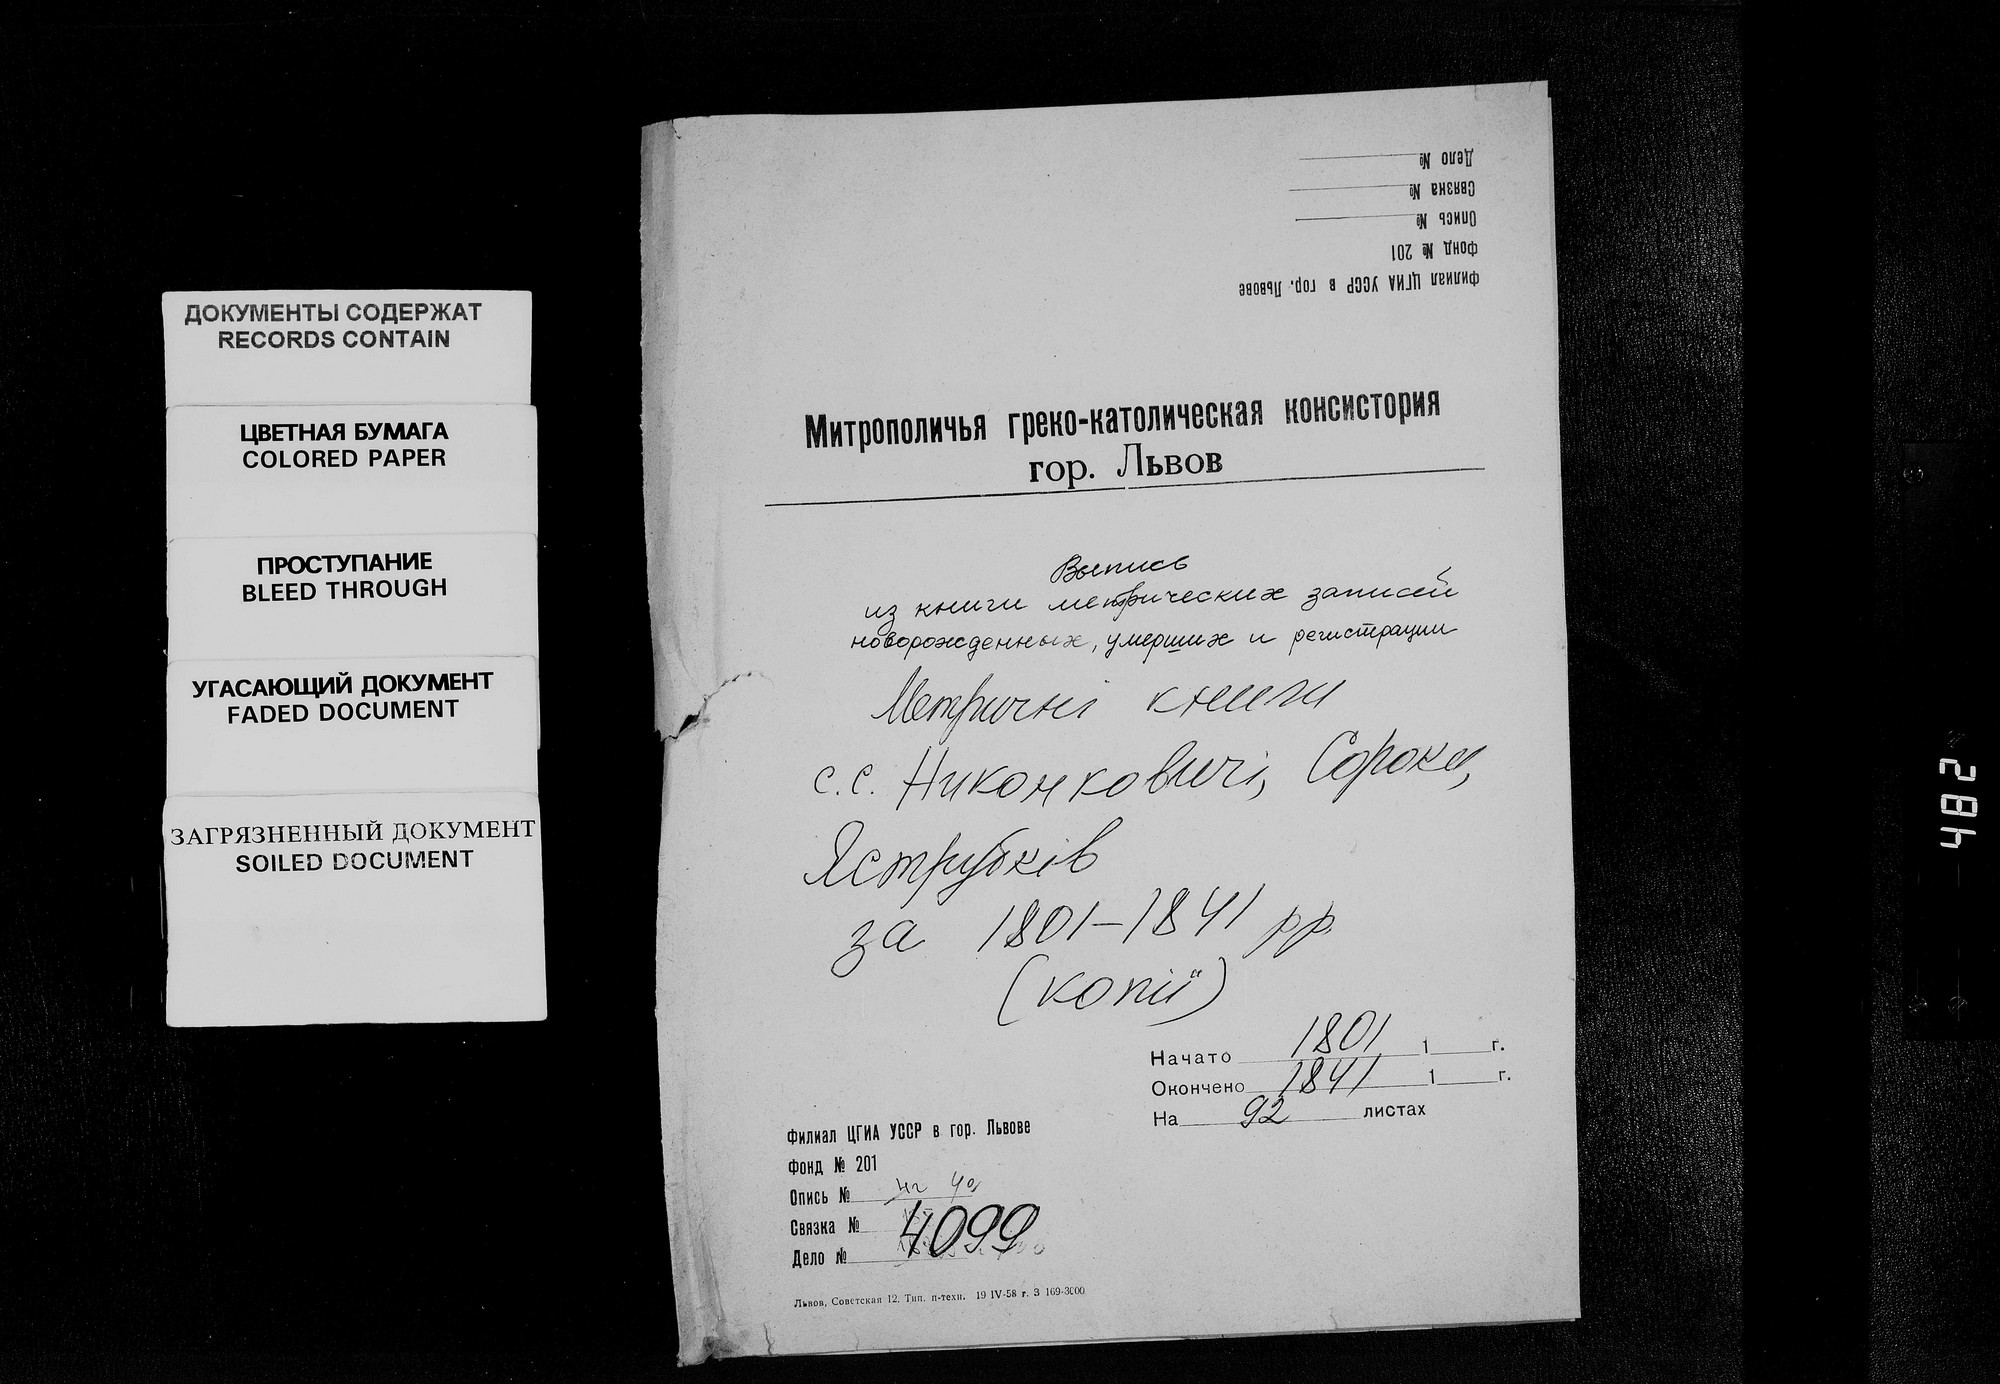 ДОКУМЕНТЫ СОДЕРЖАТ
RECORDS CONTAIN
ЦВЕТНАЯ БУМАГА
COLORED PAPER
ПРОСТУПАНИЕ
BLEED THROUGH
УГАСАЮЩИЙ ДОКУМЕНТ
FADED DOCUMENT
ЗАГРЯЗНЕННЫЙ ДОКУМЕНТ
SOILED DOCUMENT
Филиал ЦГИА УССР в гор. Львове
Фонд № 201
Опись №
Связка №
Дело №
Митрополичья греко-католическая консистория
гор. Львов
Выпись
из книги метрических записей
новорожденных, умерших и регистрации
Метричні книги
с.с. Никонковичі, Сороки,
Яструбків
за 1801-1841 рр.
(копії)
Начато 1801 1 г.
Окончено 1841 1 г.
На 92 листах
Филиал ЦГИА УССР в гор. Львове
Фонд № 201
Опись №
Связка №
Дело № 4099
Львов, Советская 12. Тип. п-техн. 19 IV-58 г. З 169-3000
482